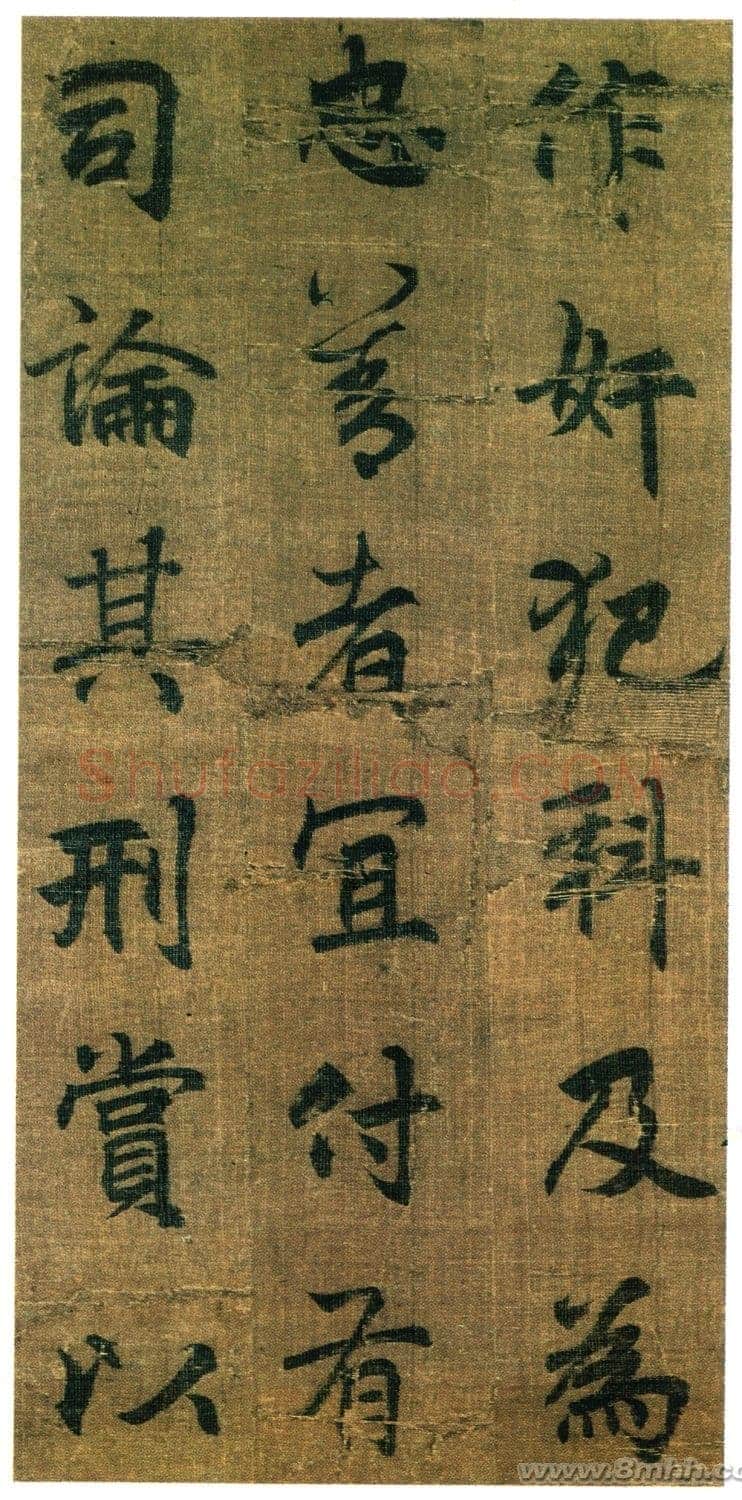 作奸犯科及為
忠善者宜付有
司論其刑賞以
Shufaziliao.COM
www.8mhh.co